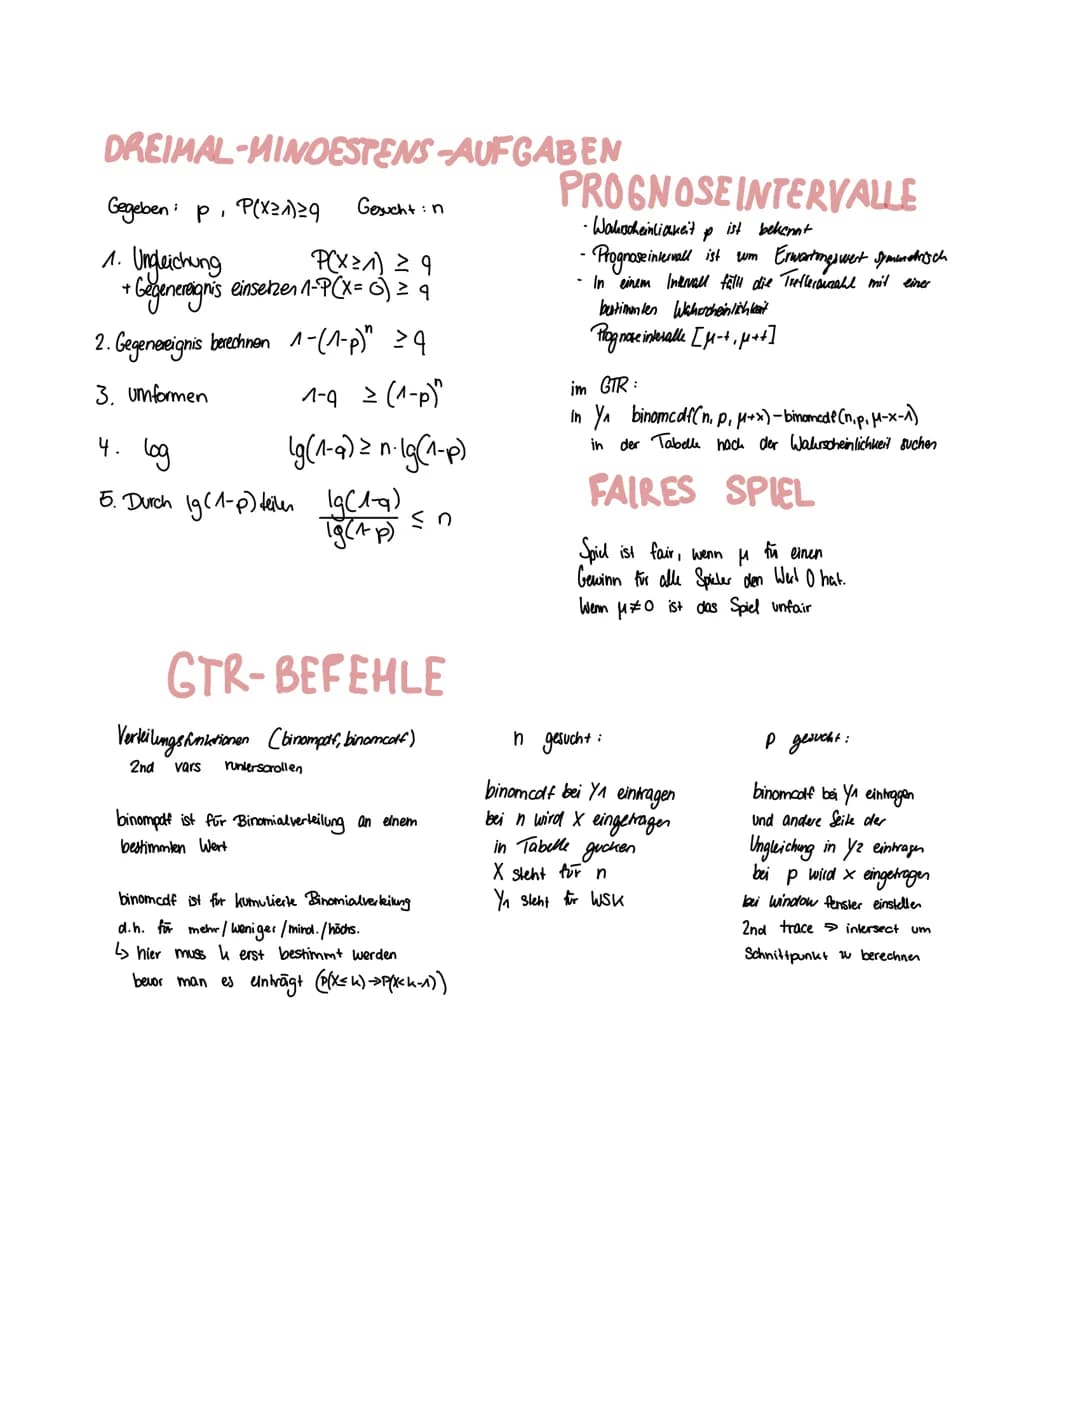 DREIMAL-MINDESTENS-AUFGABEN
Gegeben: p, P(X≥1)≥q Gesucht: n
1. Ungleichung P(X≥1) ≥ q
+ Gegenereignis einsetzen 1-P(X=0) ≥ q
2. Gegenereignis berechnen 1-(1-p)^n ≥ q
3. umformen 1-q ≥ (1-p)^n
4. log lg(1-q) ≥ n·lg(1-p)
5. Durch lg(1-p) teilen lg(1-q)/lg(1-p) ≤ n
PROGNOSEINTERVALLE
- Wahrscheinlichkeit p ist bekannt
- Prognoseintervall ist um Erwartungswert symmetrisch
- In einem Intervall fällt die Trefferanzahl mit einer
bestimmten Wahrscheinlichkeit
Prognoseintervalle [μ-t, μ+t]
im GTR:
In Y1 binomcdf(n, p, μ+x)-binomcdf(n, p, μ-x-1)
in der Tabelle nach der Wahrscheinlichkeit suchen
FAIRES SPIEL
Spiel ist fair, wenn μ für einen
Gewinn für alle Spieler den Wert 0 hat.
Wenn μ≠0 ist das Spiel unfair
GTR-BEFEHLE
Verteilungsfunktionen (binompdf, binomcdf)
2nd vars runterscrollen
binompdf ist für Binomialverteilung an einem
bestimmten Wert
binomcdf ist für kumulierte Binomialverteilung
d.h. für mehr/weniger/mind./höchs.
↳ hier muss k erst bestimmt werden
bevor man es einträgt (P(X≤k)→P(X<k-1))
n gesucht:
binomcdf bei Y1 eintragen
bei n wird X eingetragen
in Tabelle gucken
X steht für n
Y1 steht für WSK
p gesucht:
binomcdf bei Y1 eintragen
und andere Seite der
Ungleichung in Y2 eintragen
bei p wird x eingetragen
bei window Fenster einstellen
2nd trace ⇒ intersect um
Schnittpunkt zu berechnen